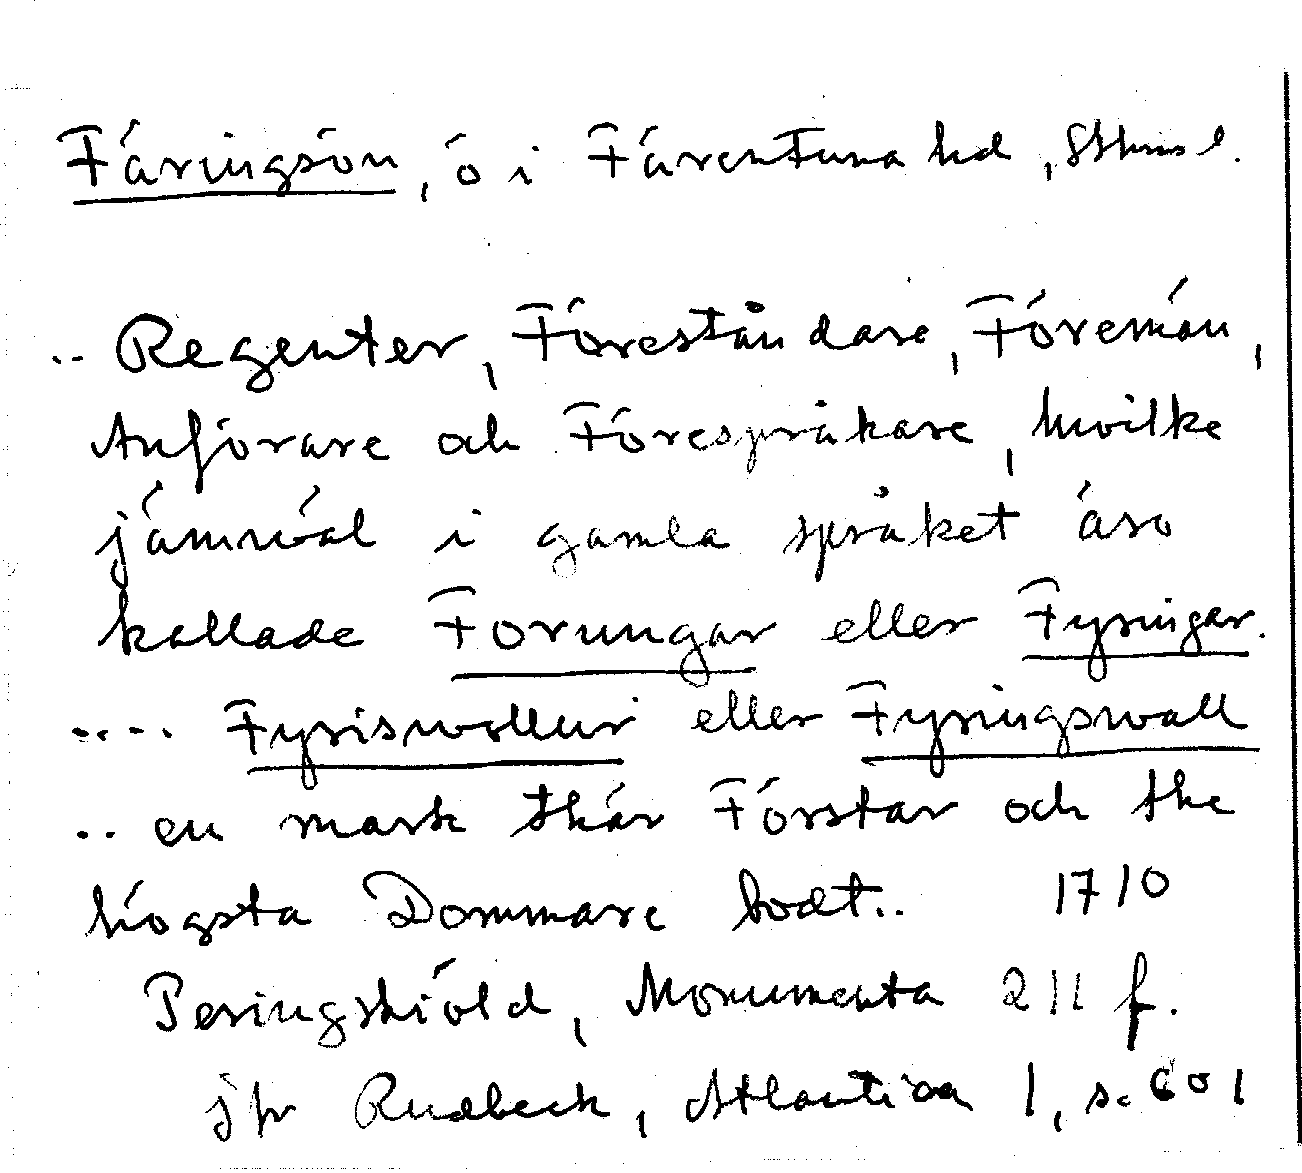 Färingsön, ö i Färentuna hd, Sthms l.
.. Regenter, Föreståndare,Föremän,
Anförare och Förespråkare, hwilke
jämwäl i gamla språket äro
kallade Forungar eller Fyringar.
.... Fyriswallur eller Fyringswall
.. en mark thär Förstar och the
högsta Dommare bodt.. 1710
Peringskiöld, Monumenta 211 f.
jfr Rudbeck, Atlantica 1, s. 601